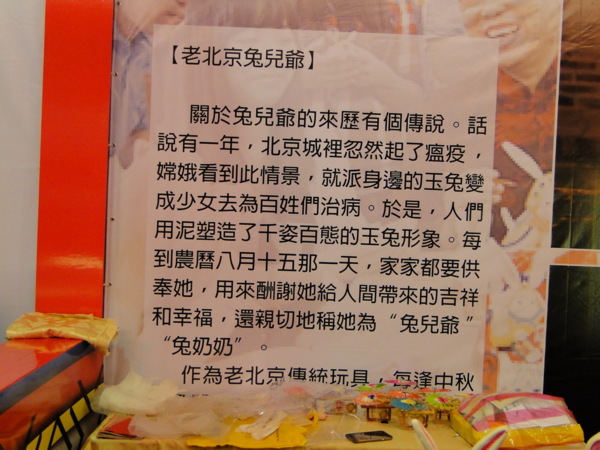 【老北京兔兒爺】
關於兔兒爺的來歷有個傳說。話
說有一年，北京城裡忽然起了瘟疫，
嫦娥看到此情景，就派身邊的玉兔變
成少女去為百姓們治病。於是，人們
用泥塑造了千姿百態的玉兔形象。每
到農曆八月十五那一天，家家都要供
奉她，用來酬謝她給人間帶來的吉祥
和幸福，還親切地稱她為“兔兒爺”
“兔奶奶”。
作為老北京傳統玩具，每逢中秋